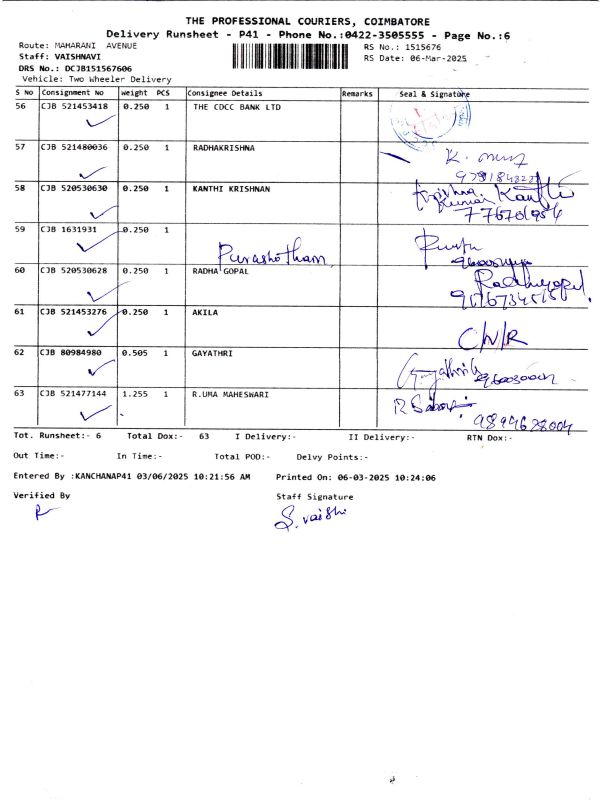 THE PROFESSIONAL COURIERS, COIMBATORE
Delivery Runsheet - P41 - Phone No.:0422-3505555 - Page No.:6
Route: MAHARANI AVENUE
RS No.: 1515676
Staff: VAISHNAVI
RS Date: 06-Mar-2025
DRS No.: DCJB151567606
Vehicle: Two Wheeler Delivery
S No Consignment No Weight PCS Consignee Details Remarks Seal & Signature
56 CJB 521453418 0.250 1 THE CDCC BANK LTD
57 CJB 521480036 0.250 1 RADHAKRISHNA
K.
58 CJB 520530630 0.250 1 KANTHI KRISHNAN
Krishna Kanthi
Kumar
776701954
59 CJB 1631931 0.250 1
Purushotham
60 CJB 520530628 0.250 1 RADHA GOPAL
Radhagopal
61 CJB 521453276 0.250 1 AKILA
C/N/R
62 CJB 80984980 0.505 1 GAYATHRI
Gayathri
63 CJB 521477144 1.255 1 R.UMA MAHESWARI
9899628004
Tot. Runsheet:- 6 Total Dox:- 63 I Delivery:- II Delivery:- RTN Dox:-
Out Time:- In Time:- Total POD:- Delvy Points:-
Entered By :KANCHANAP41 03/06/2025 10:21:56 AM Printed On: 06-03-2025 10:24:06
Verified By Staff Signature
R S. vaishi